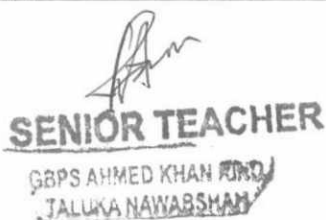 SENIOR TEACHER
GBPS AHMED KHAN RIND
TALUKA NAWABSHAH